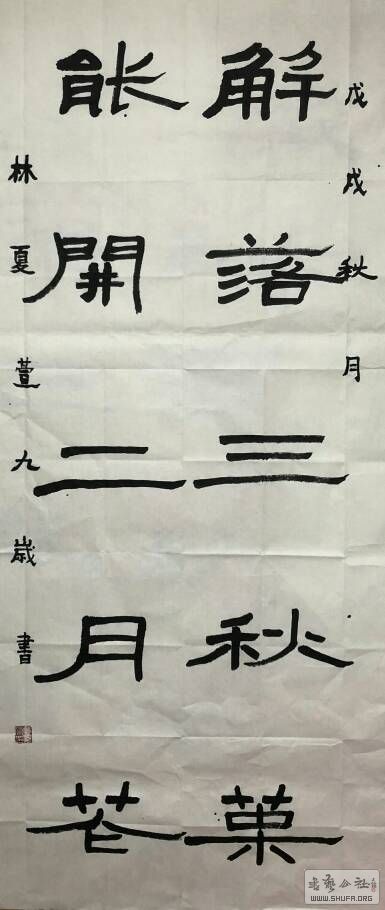 戊戌秋月
解落三秋菓
能開二月花
林夏萱九歲書
書藝公社
WWW.SHUFA.ORG